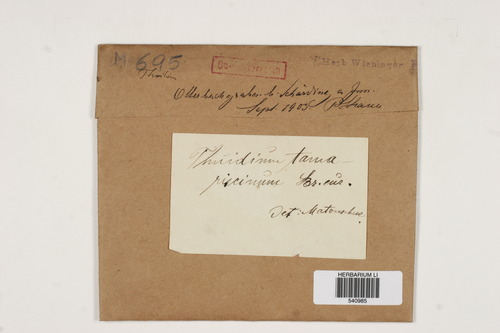 M 695
Herb Wieninger
b. Schärding a. Inn.
Sept. 1903
Thuidium tama-
riscinum Br. eur.
Det: Matouschek
HERBARIUM LI
540985